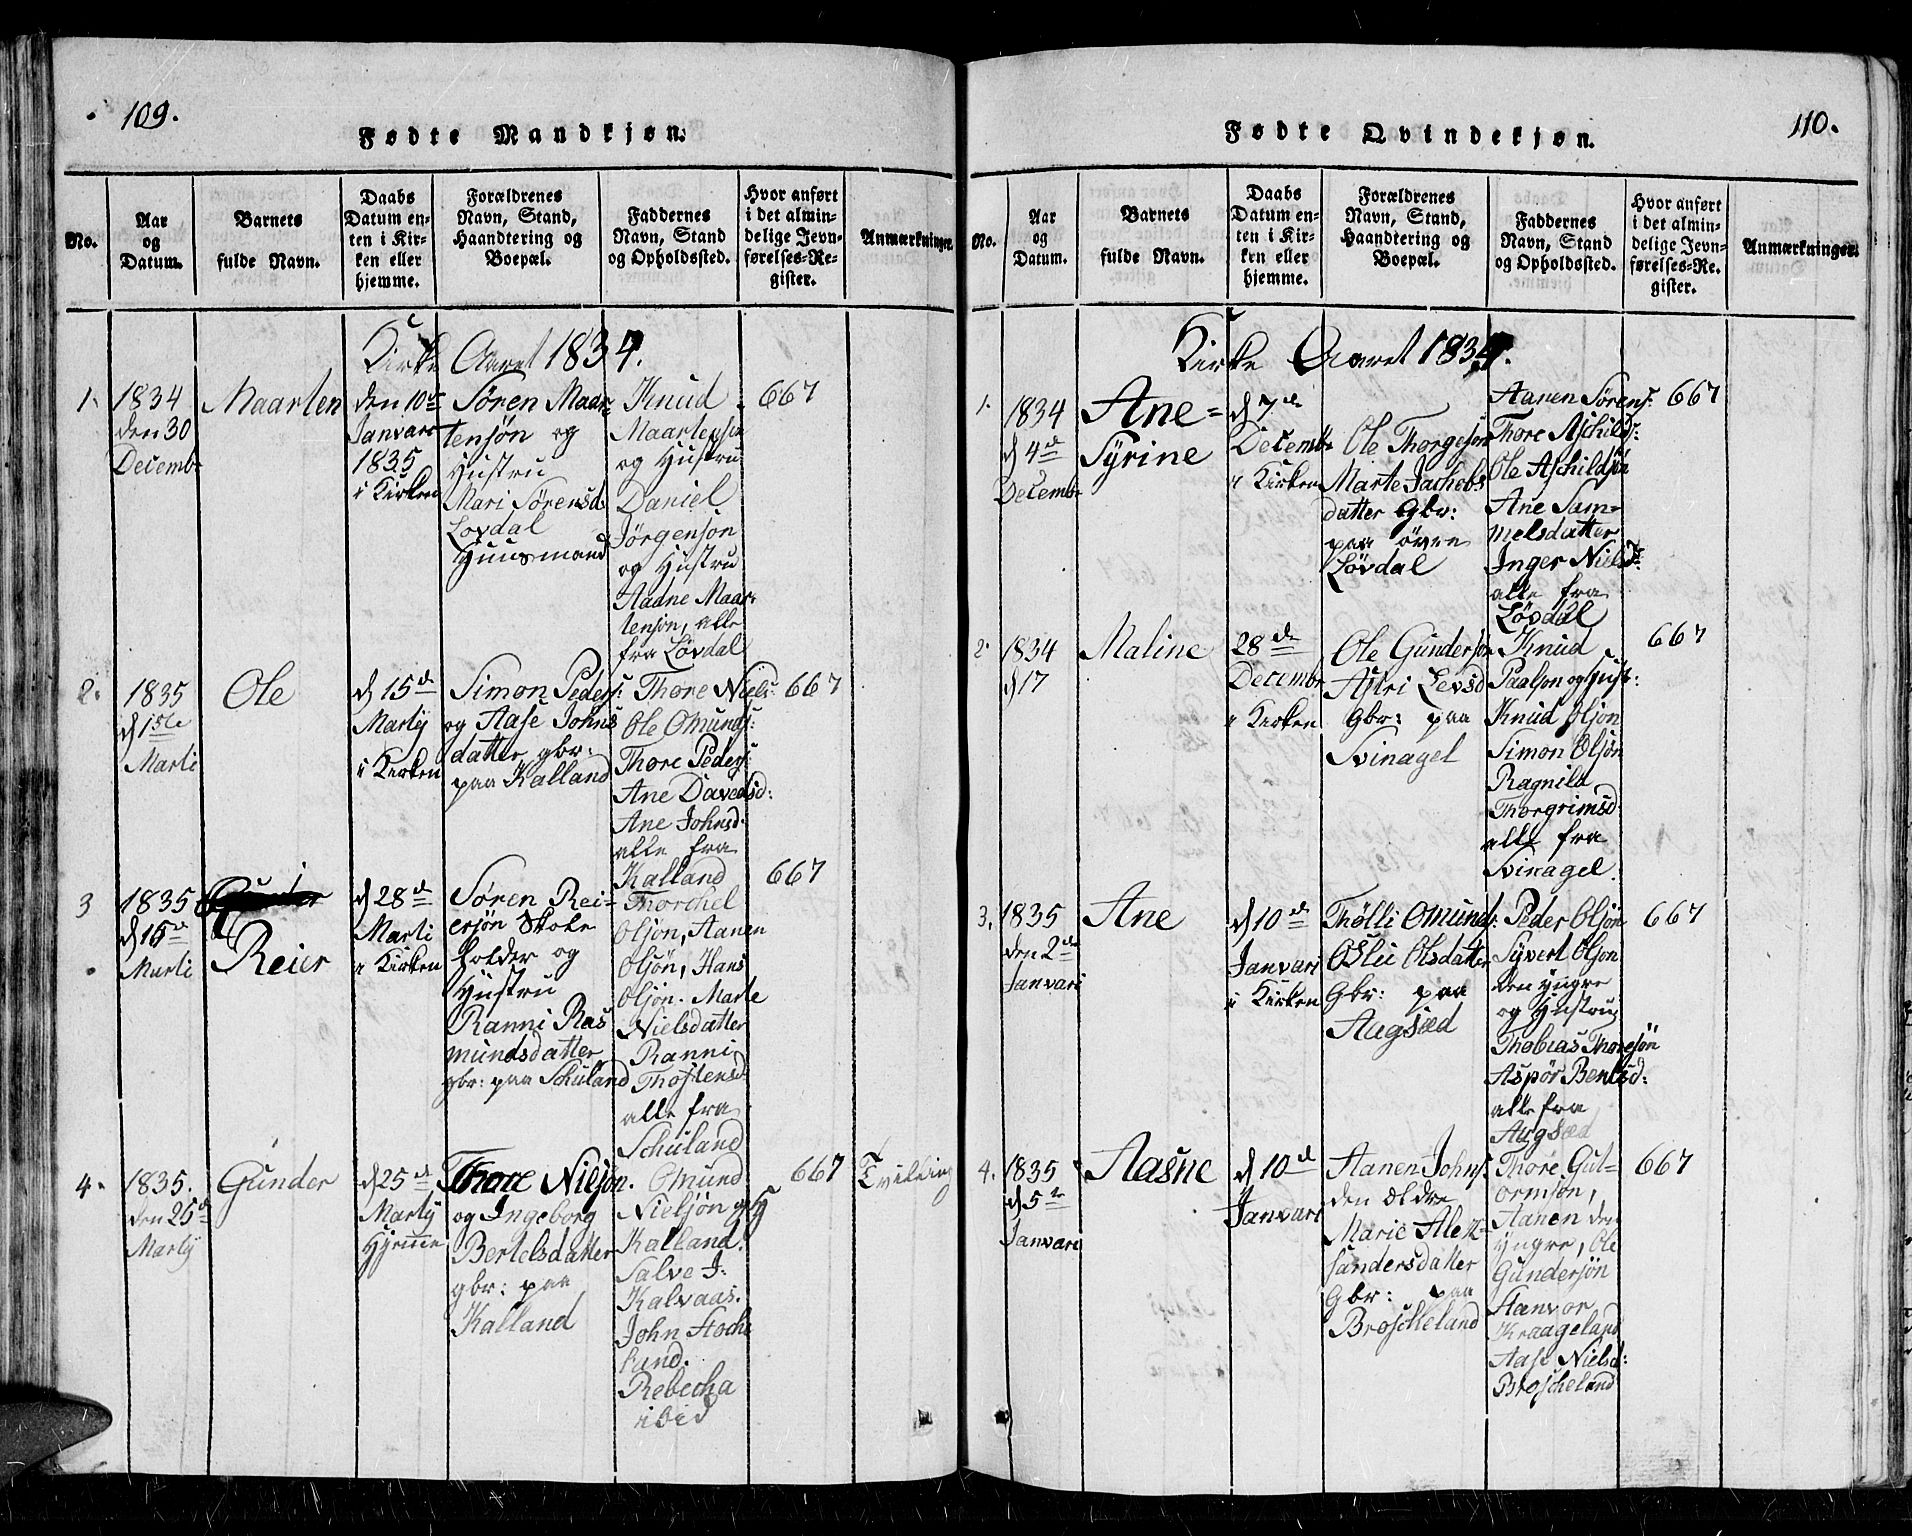 109.
Fødte Mandkjøn.
No.
Aar
og
Datum.
Barnets
fulde Navn.
Daabs
Datum en-
ten i Kir-
ken eller
hjemme.
Forældrenes
Navn, Stand,
Haandtering og
Boepæl.
Faddernes
Navn, Stand
og Opholdssted.
Hvor anført
i det almin-
delige Jevn-
førelses-Re-
gister.
Anmærkninger.
Kirke Aaret 1834.
1.
1834
den 30
Decemb
Maarten
den 10de
Januar
1835
i Kirken
Søren Maar-
tensøn og
Hustru
Mari Sørensd
Løvdal
Huusmand
Knud
Maartensøn
og Hustru
Daniel
Jørgensøn
og Hustru
Aadne Maar-
tensøn, alle
fra Løvdal
667
2.
1835
d 1ste
Marti
Ole
d 15de
Martij
i Kirken
Simon Peders:
og Aase Johns
datter gbr:
paa Kalland
Thore Niels:
Ole Omunds:
Thore Peders:
Ane Davedsd:
Ane Johnsd:
alle fra
Kalland
667
3
1835
d 15de
Marti
Reier
d 28de
Marti
i Kirken
Søren Rei-
ersøn Skole
holder og
Hustru
Ranni Ras
mundsdatter
gbr: paa Schuland
Thorchel
Olsøn, Aanen
Olsøn, Hans
Olsøn. Marte
Nielsdatter
Ranni
Thostensd
alle fra
Schuland
667
4.
1835.
den 25de
Martij
Gunder
d 25de
Martij
Hjemme
Thore Nilsøn.
og Ingeborg
Bertelsdatter
gbr: paa
Kalland
Omund
Nielsøn
Kalland.
Salve J:
Kalvaas.
John Hoche
land.
Rebecha
ibid
667
Tvilling
110.
Fødte Qvindekjøn.
No.
Aar
og
Datum.
Barnets
fulde Navn.
Daabs
Datum en-
ten i Kir-
ken eller
hjemme.
Forældrenes
Navn, Stand,
Haandtering og
Boepæl.
Faddernes
Navn, Stand
og Opholdssted.
Hvor anført
i det almin-
delige Jevn-
førelses-Re-
gister.
Anmærkninger.
Kirke Aaret 1834.
1.
1834
d 4de
Decemb
Ane-
Syrine
d 7de
Decemb
i Kirken
Ole Thorgesøn
Marte Jachobs
datter Gbr:
paa øvre
Løvdal
Aanen Sørens:
Thore Aschilds:
Ole Aschildsøn
Ane Sam-
uelsdatter
Inger Nielsd:
alle fra
Løvdal
667
2.
1834
d 17
Maline
28de
Decembr
i Kirken
Ole Gundersøn
Astri Levsd
Gbr: paa
Svinagel
Knud
Paalsøn og Hust:
Knud Olsøn
Simon Olsøn
Ragnild
Thorgrimsd
alle fra
Svinagel.
667
3.
1835
den 2de
Januari
Ane
d 10de
Januari
i Kirken
Thølli Omunds:
Oslu Olsdatter
Gbr: paa
Augsæd
Peder Olsøn
Syvert Olsøn
den yngre
og Hustru
Thobias Thoresøn
Aspør Bentsd:
alle fra
Augsæd
667
4.
1835
d 5te
Januari
Aasne
d 10de
Januari
Aanen Johns:
den ældre
Marie Alex-
sandersdatter
Gbr: paa
Broscheland
Thore Gut-
ormsøn,
Aanen den
yngre, Ole
Gundersøn
Hanvor
Kraageland
Aase Nielsd:
Broscheland
667